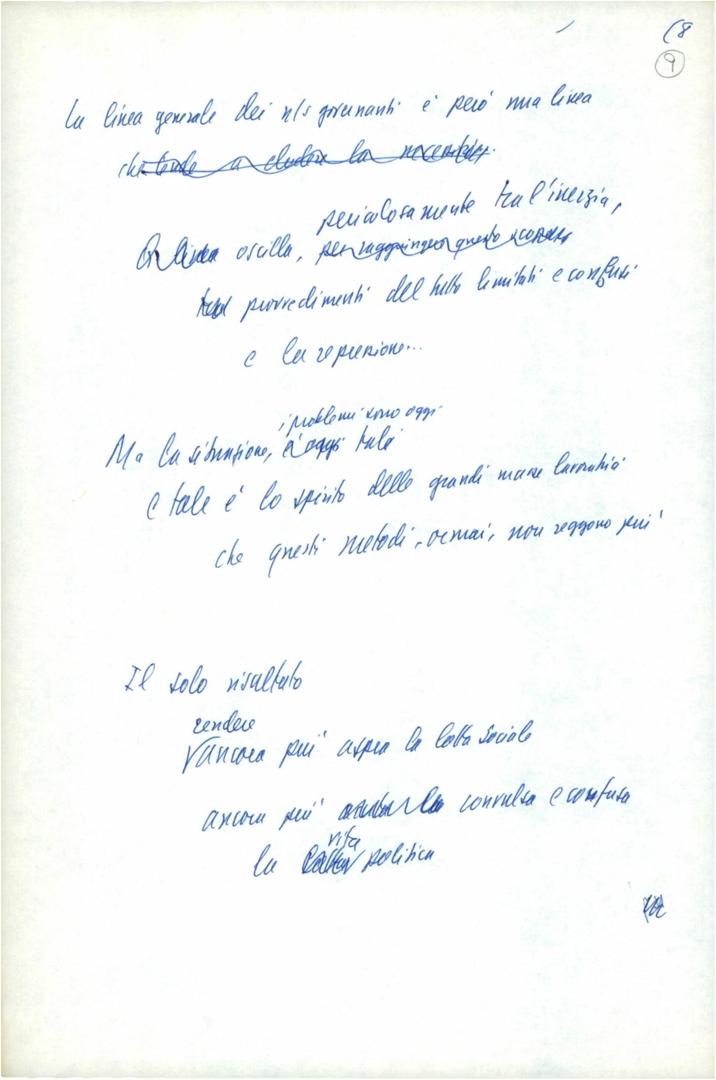 68
9
La linea generale dei n/s governanti è però una linea
che tende a eludere la
pericolosamente tra l'inerzia,
linea oscilla, per raggiungere questo scopo
provvedimenti del tutto limitati e confusi
e la repressione...
i problemi sono oggi
Ma la situazione, è oggi tale
e tale è lo spirito delle grandi masse lavoratrici
che questi metodi, ormai, non reggono più
Il solo risultato
rendere
ancora più aspra la lotta sociale
ancora più convulsa e confusa
vita
la politica